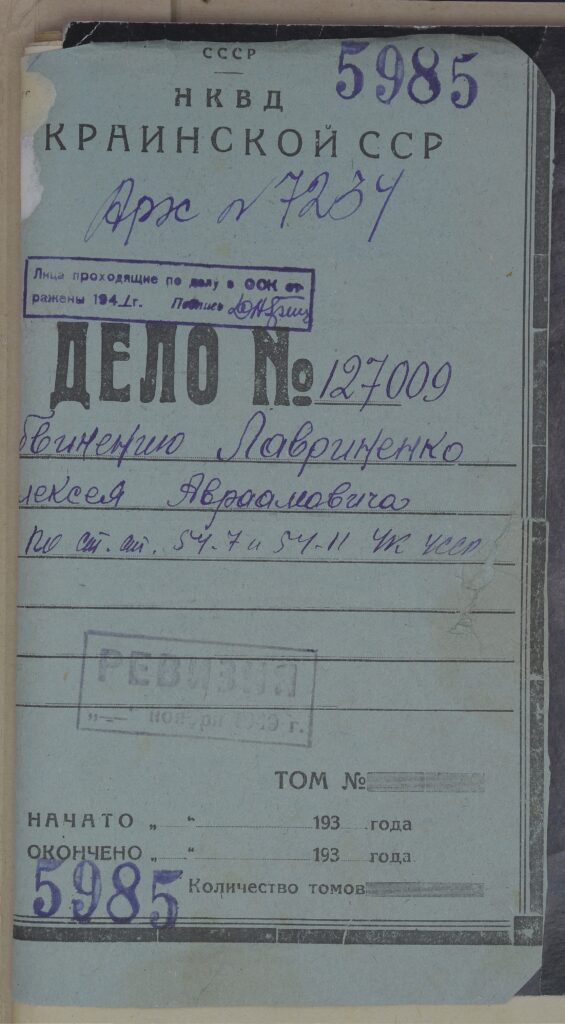 СССР
5985
НКВД
КРАИНСКОЙ ССР
Арх № 7234
Лица проходящие по делу в ООК от-
ражены 1941г. Подпись
ДЕЛО № 127009
бвинению Лавриненко
лексея Авраамовича
по ст.ст. 54-7 и 54-11 УК УССР
РЕВИЗИЯ
г.
ТОМ №
НАЧАТО „ “ 193 года
ОКОНЧЕНО „ “ 193 года
5985
Количество томов